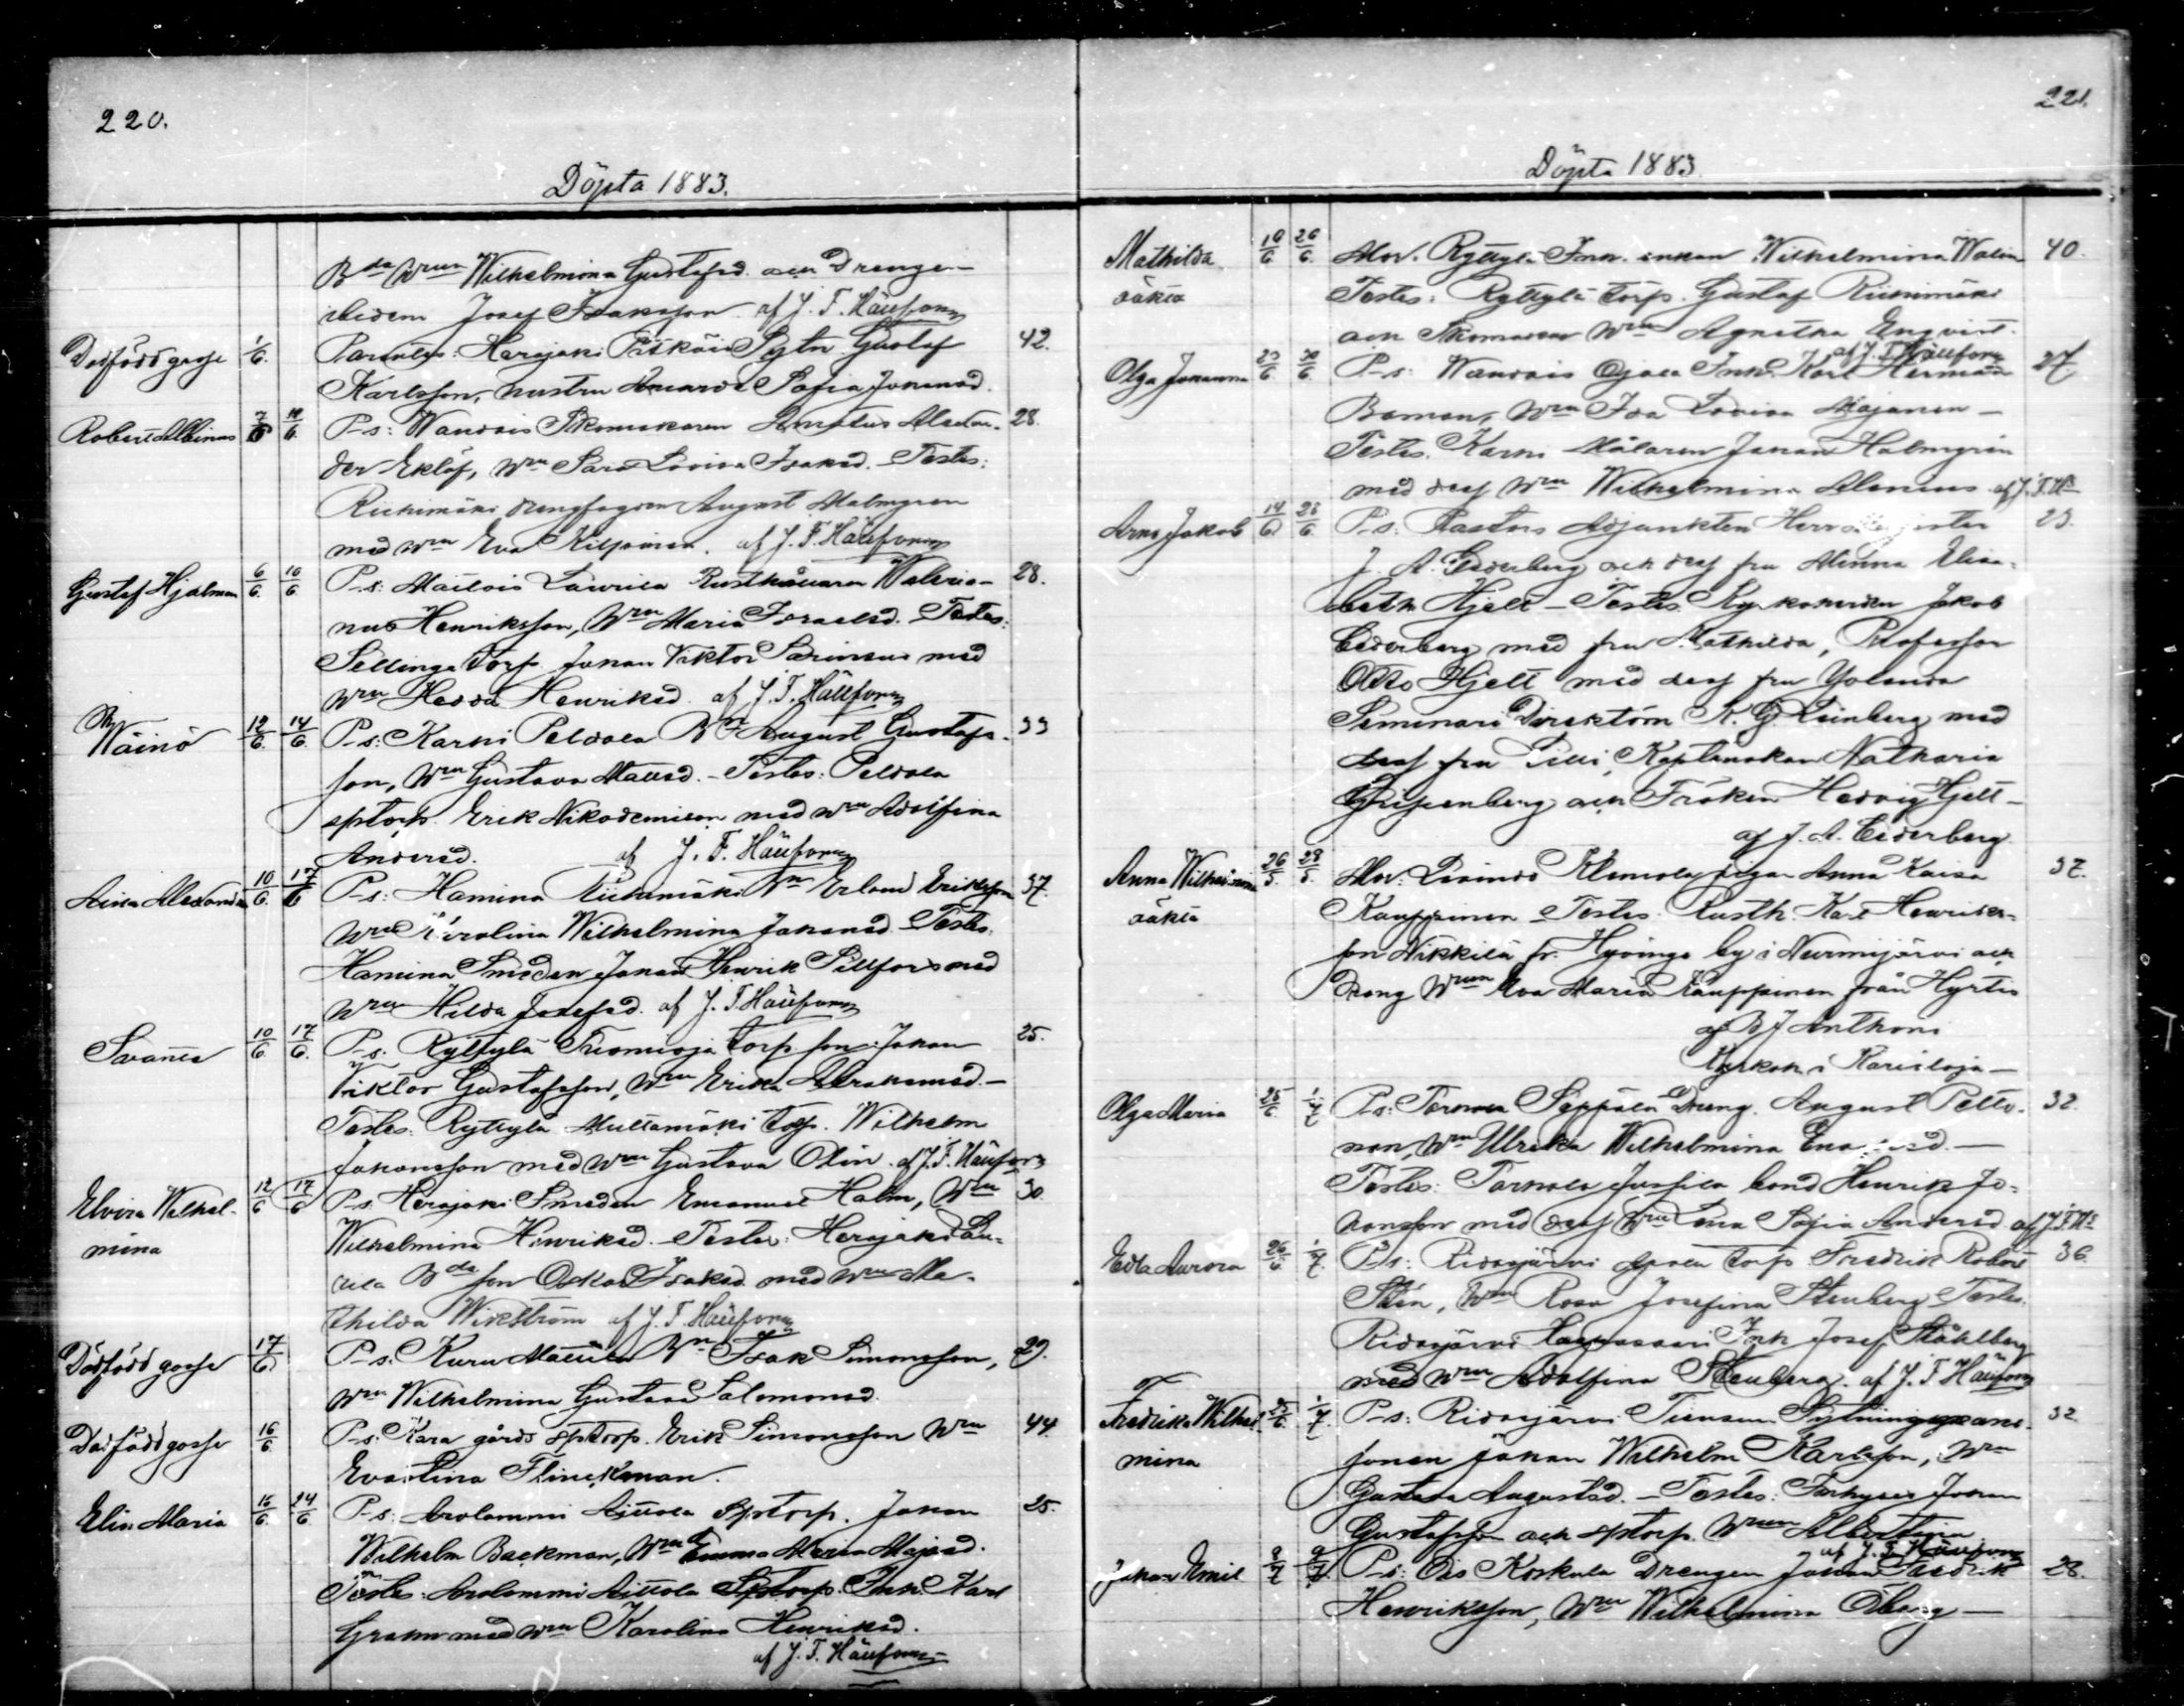 220.
Döpta 1883.
Bda Wrun Wilhelmina Gustafsd. och Drengen
ibidem Josef Isaksson. af J. F. Hällfors
Dödfödd gosse 1/6. Parentes: Herajoki Pitkäis Sytn. Gustaf 42.
Karlsson, hustru Amanda Sofia Johansd.
Robert Albinus 7/6 10/6. P-s: Wandois Skomakaren Amatus Alexan- 28.
der Eklöf, Wrn Sara Lovisa Isaksd. Testes:
Riihimäki drengfogden August Malmgren
med wrn Eva Kilpinen. af J. F. Hällfors
Gustaf Hjalmar 6/6. 10/6. P-s: Maulois Laurila Rusthållaren Waleria- 28.
nus Henriksson, Wrn Maria Israelsd. Testes:
Sellinge torp. Johan Viktor med
wrn Hedda Henriksd. af J. F. Hällfors
Wäinö 12/6. 14/6. P-s: Karhi Peldola Bn August Gustafs- 33
son, Wrn Gustava Mattsd. - Testes: Peldola
sptorp. Erik Nikodemison med wrn Adolfina
Andersd. af J. F. Hällfors
Aina Alexandra 10/6. 17/6 P-s: Hamina Riihimäki Bn Erland Eriksson 37.
Wrn Karolina Wilhelmina Johansd. Testes.
Hamina Smeden Johan Henrik Sillfors med
wrn Hilda Josefsd. af J. F. Hällfors
Svante 10/6. 17/6. P-s: Ryttylä Tuomioja torp. son Johan 25.
Viktor Gustafsson, Wrn Erika Abrahamsd. -
Testes. Ryttylä Multamäki torp. Wilhelm
Johansson med wrn Gustava Olin. af J. F. Hällfors
Elvira Wilhel- 12/6 17/6 P-s. Herajoki Smeden Emanuel Holm, Wrn 30.
mina Wilhelmina Henriksd. - Testes: Herajoki Lau-
rila Bda son Oskar Isaksd. med wrn Ma-
thilda Wikström af J. F. Hällfors
Dödfödd gosse 17/6 P-s. Kuru Mattila Bn Isak Simonsson, 29.
wrn Wilhelmina Gustava Salomonsd.
Dödfödd gosse 16/6. P-s: Kara gårds sptorp. Erik Simonsson Wrn 44.
Eva Lina Flinckman.
Elin Maria 16/6. 24/6 P-s: Arolammi Aittola sptorp. Johan 25.
Wilhelm Backman, Wrn Emma Maria Majasd.
Testes: Arolammi Aittola Sptorp. Inh. Karl
Grahn med wrn Karolina Henriksd.
af J. F. Hällfors
221.
Döpta 1883
Mathilda 10/6 26/6. Mor. Ryttylä Inh. enkan Wilhelmina Walin 40.
oäkta Testes: Ryttylä torp. Gustaf Riihimäki
och Skomakare Wrn Agnetha Engvist.
af J. F. Hällfors
Olga Johanna 23/6. 30/6. P-s: Wandois Ojala Inh. Karl Herman 27.
Boman, Wrn Ida Lovisa Majanen -
Testes. Karhi Målaren Johan Holmgren
med dess Wrn Wilhelmina Alenius af J. F. Hs
Arno Jakob 14/6 28/6. P-s: Pastors Adjunkten Herr 23.
J. A. Cederberg och dess fru Minna Elisa-
beth Hjelt - Testes Kyrkoherden Jakob
Cederberg med fru Mathilda, Professor
Otto Hjelt med dess fru Yolanda
Seminarii Direktörn K. G. Leinberg med
dess fru Lilli, Kaptenskan Natharia
Gripenberg och Fröken Hedvig Hjelt -
af J. A. Cederberg
Anna Wilhelmina 26/5. 28/5. Mor: Lovinds Klemola pigan Anna Kaisa 37.
oäkta Kauppinen - Testes. Rusth. Karl Henriks-
son Nikkilä fr. Hyvinge by i Nurmijärvi och
Dreng Wrn Eva Maria Kauppinen från Hyrtis
af B J Anthoni
Kyrkoh. i Karislojo -
Olga Maria 25/6. 1/7 P-s: Seppälä Dreng. August Pelto- 32.
nen, Wrn Ulrika Wilhelmina
Testes: Jussila bond Henrik Jo-
hansson med dess Wrn Lena Sofia Andersd. af J. F. Hs
Edla Aurora 26/6. 1/7. P-s: Ridasjärvi torp. Fredrik Robert 36.
Stén, Wrn Rosa Josefina Stenberg Testes.
Ridasjärvi Inh Josef Ståhlberg
med wrn Adolfina Stenberg. af J. F. Hällfors
Fredrika Wilhel- 25/6. 1/7. P-s: Ridasjärvi Sytningsmans 32
mina sonen Johan Wilhelm Karlsson, Wrn
Gustava Augustsd. - Testes: Johan
Gustafsson och sptorp. Wrun Albertina
af J. F. Hällfors
Johan Emil 8/7 P-s: Ois Koskula Drengen Johan Fredrik 28.
Henriksson, Wrn Wilhelmina Öberg -